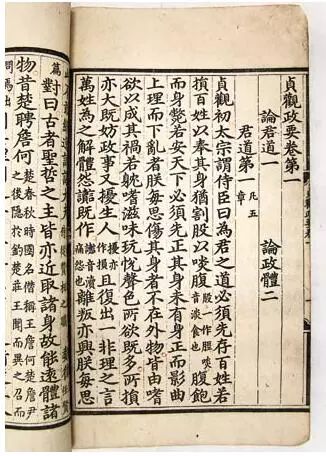 貞觀政要卷第一
論君道一　論政體二
君道第一凡五章
貞觀初太宗謂侍臣曰為君之道必須先存百姓若
損百姓以奉其身猶割股以啖腹股一作脛啖音淡食也腹飽
而身斃若安天下必須先正其身未有身正而影曲
上理而下亂者朕每思傷其身者不在外物皆由嗜
欲以成其禍若耽嗜滋味玩悅聲色所欲既多所損
亦大既妨政事又擾生人擾亦作損且復出一非理之言
萬姓為之解體怨讟既作讟音瀆痛怨也離叛亦興朕每思
篇對曰古者聖哲之主皆亦近取諸身故能遠體諸
物昔楚聘詹何楚春秋時國名僭稱王詹何詹尹之後隱於釣楚莊王聞而異之召而